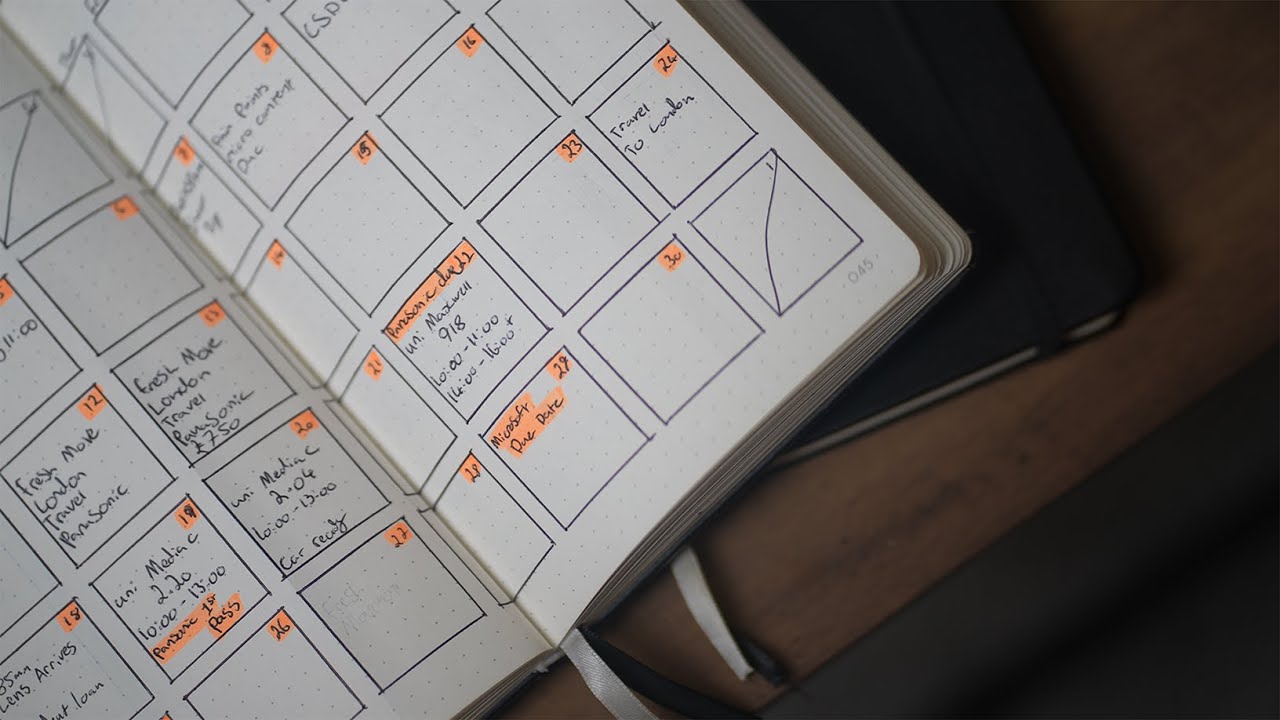 11:00
6
12
Fresh Move
London
Travel
Panasonic
13
Fresh Move
London
Travel
Panasonic
£750
18
35mm
Lens Arrives
loan
19
uni Media C
2.20
10:00 - 13:00
Panasonic 1st
Pass
20
uni Media C
2.04
10:00 - 13:00
Car ready
26
27
Fresh
CSD
8
Points
Micro content
Due
7
14
15
16
21
Panasonic due 22
uni Maxwell
918
10:00 - 11:00
14:00 - 16:00 +
23
24
Travel
To London
28
29
Microsoft
Due Date
30
1
045